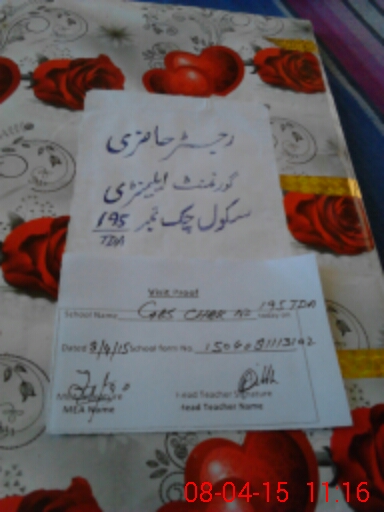 رجسٹر حاضری
گورنمنٹ ایلیمنٹری
سکول چک نمبر 195
TDA
Visit Proof
School Name GES CHAK No 195 TDA
Dated 8/4/15 School form No.
MEA Name Lead Teacher Signature
Lead Teacher Name
08-04-15 11:16